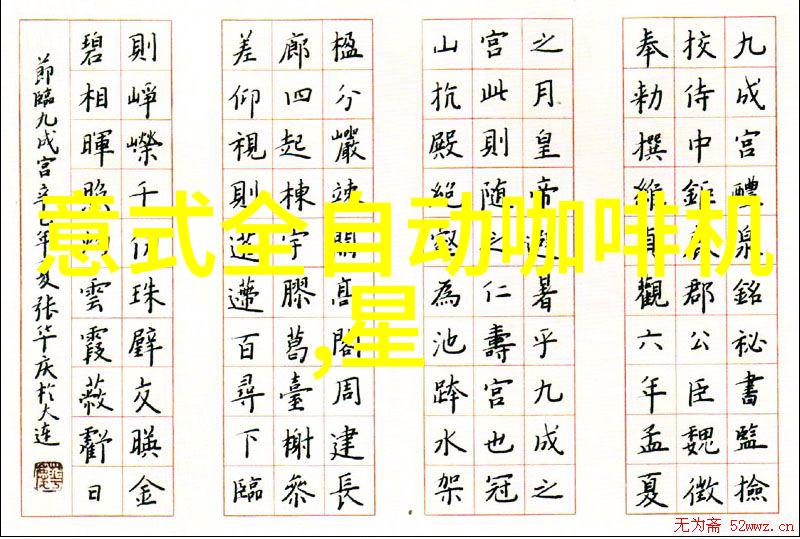 九成宫醴泉銘秘書監撿
挍侍中鉅鹿郡公臣魏徵
奉勑撰維貞觀六年孟夏
之月皇帝避暑乎九成之
宫此則随之仁壽宫也冠
山抗殿絕壑為池跨水架
楹分巖竦闕髙閣周建長
廊四起棟宇膠葛臺榭參
差仰視則迢遰百尋下臨
則崢嶸千仞珠璧交暎金
碧相暉照灼雲霞蔽虧日
節臨九成宫辛巳年夏张华庆於大连
意式全自动咖啡机
,星
无为斋 52wwz.cn